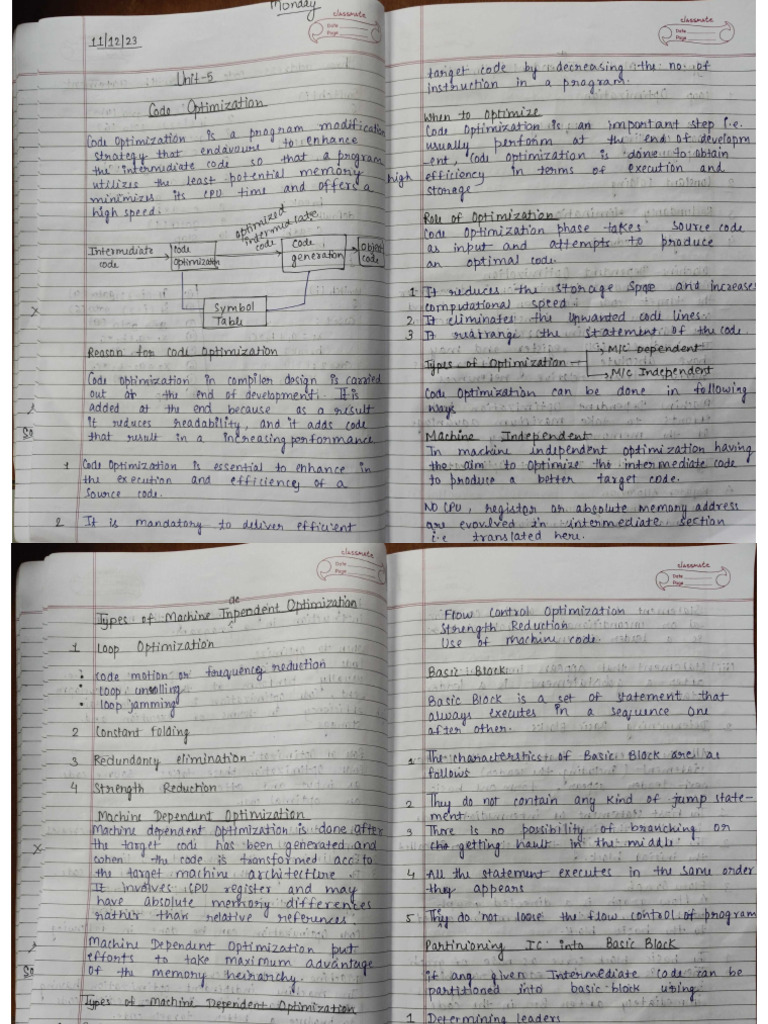 Monday
classmate
Date
Page
11/12/23
Unit-5
Code Optimization
Code Optimization is a program modification
strategy that endavoure to enhance
the intermediate code so that a program
utilizes the least potential memory
minimizes its CPU time and offers a
high speed.
Intermediate
code
code
optimization
optimized
intermidiate
code
Code
generation
Object
code
Symbol
Table
Reason for Code Optimization
Code optimization in compiler design is carried
out at the end of development. It is
added at the end because as a result
it reduces readability, and it adds code
that result in a increasing performance
1 Code Optimization is essential to enhance in
the execution and efficiency of a
source code.
2. It is mandatory to deliver efficient
classmate
Date
Page
target code by decreasing the no. of
instruction in a program.
When to Optimize
Code Optimization is an important step i.e.
usually perform at the end of developm
ent, Code Optimization is done to obtain
high efficiency in terms of execution and
storage
Role of Optimization
Code Optimization phase takes source code
as input and attempts to produce
an optimal code.
1. It reduces the storage space and increases
computational speed.
2. It eliminates the upwarded code lines.
3 It rearrange the statement of the code.
Types of Optimization
M/C Dependent
M/C Independent
Code Optimization can be done in following
ways
Machine Independent
In machine independent optimization having
the aim to optimize the intermediate code
to produce a better target code.
NO CPU, registor or absolute memory address
are evovlved in intermediate section
i.e translated here.
classmate
Date
Page
Types of Machine Inpendent Optimization
de
1 Loop Optimization
• code motion or frequency reduction
• loop unrolling
• loop jamming
2 Constant folding
3 Redundancy elimination
4 Strength Reduction
Machine Dependent Optimization
Machine dependent optimization is done after
the target code has been generated and
when the code is transformed acc to
the target machine architecture.
It involves CPU register and may
have absolute memory differences
rather than relative references.
Machine Dependent Optimization put
efforts to take maximum advantage
of the memory heirarchy.
Types of Machine Dependent Optimization
classmate
Date
Page
Flow Control Optimization
Strength Reduction
Use of machine code.
Basic Block
Basic Block is a set of statement that
always executes in a sequence one
after other.
1 The characteristics of Basic Block are as
follows
2 They do not contain any kind of jump state-
ment.
3 There is no possibility of branching or
getting hault in the middle.
4 All the statement executes in the same order
they appears
5 They do not loose the flow control of program
Partinioning IC into Basic Block
if any given Intermediate code can be
partitioned into basic block using
1 Determining leaders